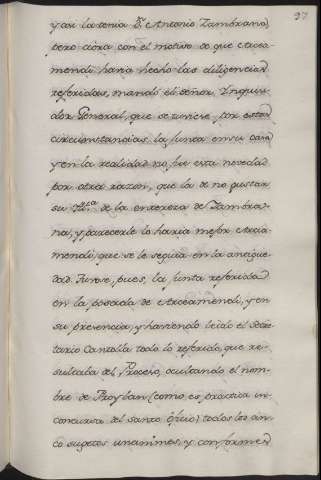 97
y así la tenia Dn. Antonio Zambrano,
pero aora con el motivo de que Arcea-
mendi havia hecho las diligencias
referidas, mandó el señor Inquisi-
dor General, que se tuviese por estas
circunstancias la Junta en su casa
y en la realidad no fue esta novedad
por otra razon, que la de no gustar
su de la entereza de Zambra-
na, y parecerle lo haria mejor Arcia-
mendi, que se le seguia en la antigue-
dad. Tuvose, pues, la Junta referida
en la posada de Arceamendi, y en
su presencia, y haviendo leido el Secre-
tario Cantolla todo lo referido, que re-
sultaba del Proceso, ocultando el nom-
bre de Froylan (como es practica in-
concursa del santo oficio) todos los cin-
co sugetos unanimes, y conformes